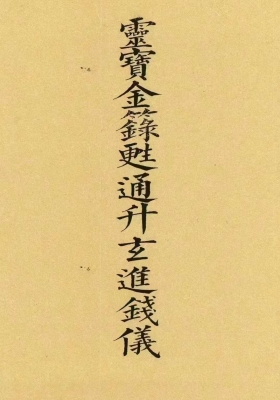 靈寳金籙甦通升玄進錢儀